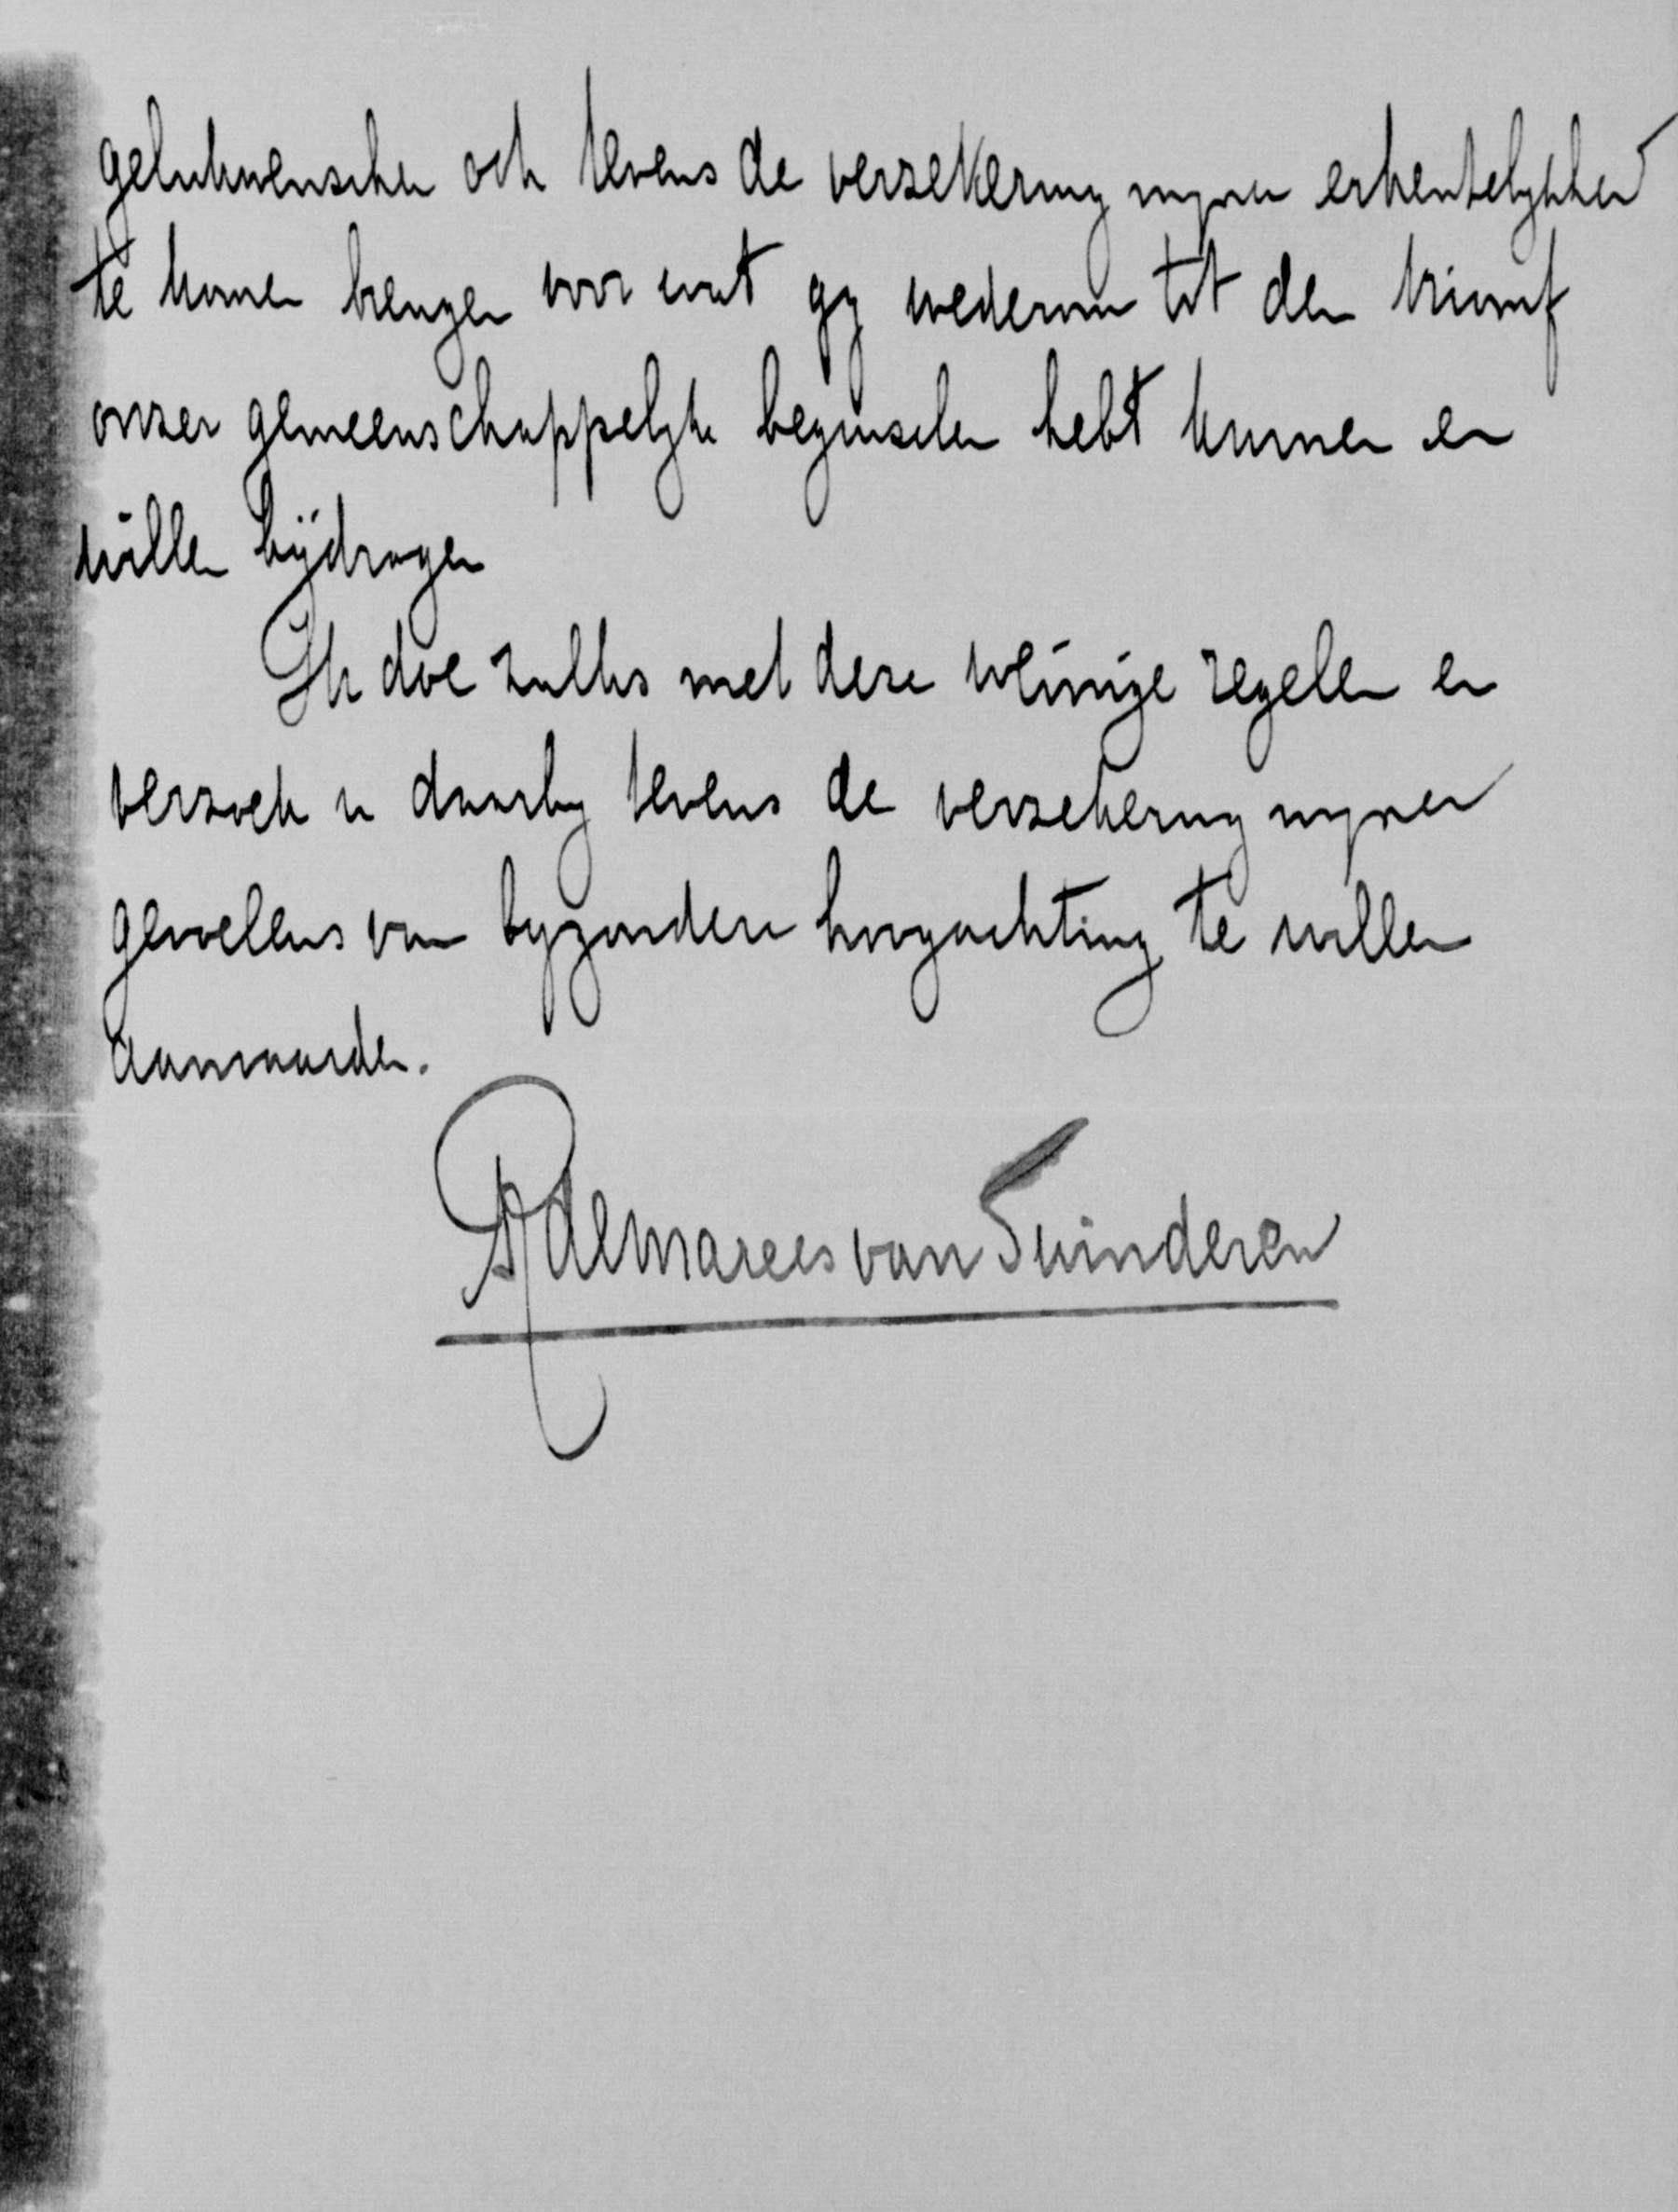 gelukwenschen ook tevens de verzekering myner erkentelykheid
te komen brengen voor wat gy wederom tot den triomf
onzer gemeenschappelyke beginselen hebt kunnen en
willen bijdragen
Ik doe zulks met deze weinige regelen en
verzoek u daarby tevens de verzekering myner
gevoelens van byzondere hoogachting te willen
aanvaarden.
R de Marees van Swinderen